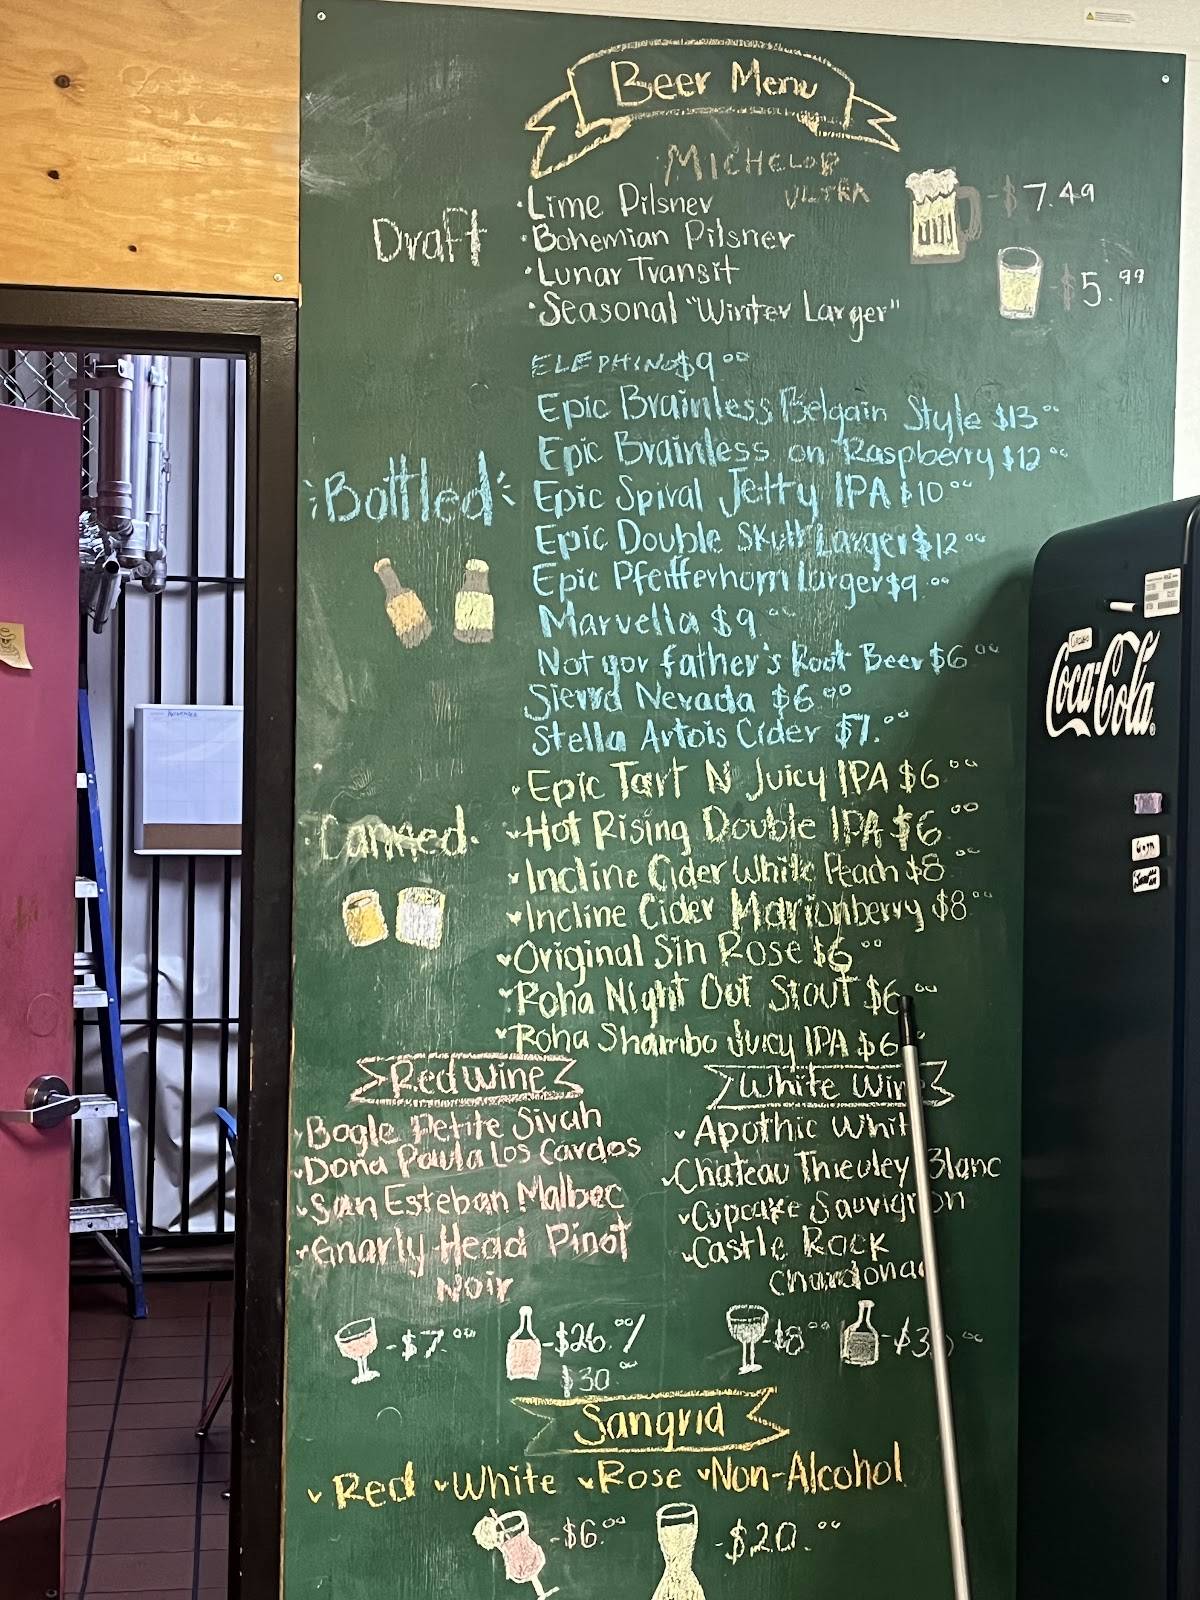 Beer Menu
MICHELOB
ULTRA
Draft
·Lime Pilsner
·Bohemian Pilsner
·Lunar Transit
·Seasonal "Winter Larger"
-$7.49
-$5.99
ELEPHINO $9.00
Epic Brainless Belgain Style $13.00
Epic Brainless on Raspberry $12.00
Bottled
Epic Spiral Jetty IPA $10.00
Epic Double Skull Larger $12.00
Epic Pfeifferhorn Larger $9.00
Marvella $9.00
Not yor father's Root Beer $6.00
Sierra Nevada $6.00
Stella Artois Cider $7.00
Canned
Epic Tart N Juicy IPA $6.00
Hot Rising Double IPA $6.00
Incline Cider White Peach $8.00
Incline Cider Marionberry $8.00
Original Sin Rose $6.00
Roha Night Out Stout $6.00
Roha Shambo Juicy IPA $6
Red Wine
Bogle Petite Sirah
Dona Paula Los Cardos
San Esteban Malbec
Gnarly Head Pinot
Noir
-$7.00
-$26.00/
$30.00
White Win
Apothic Whit
Chateau Thieuley Blanc
Cupcake Sauvignon
Castle Rock
Chardona
-$8.00
Sangria
Red White Rose Non-Alcohol
-$6.00
-$20.00
Coca-Cola